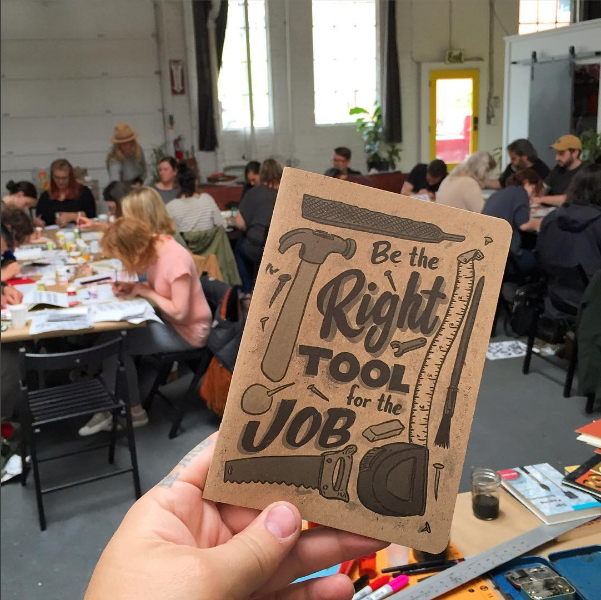 Be the
Right
TOOL
for the
JOB